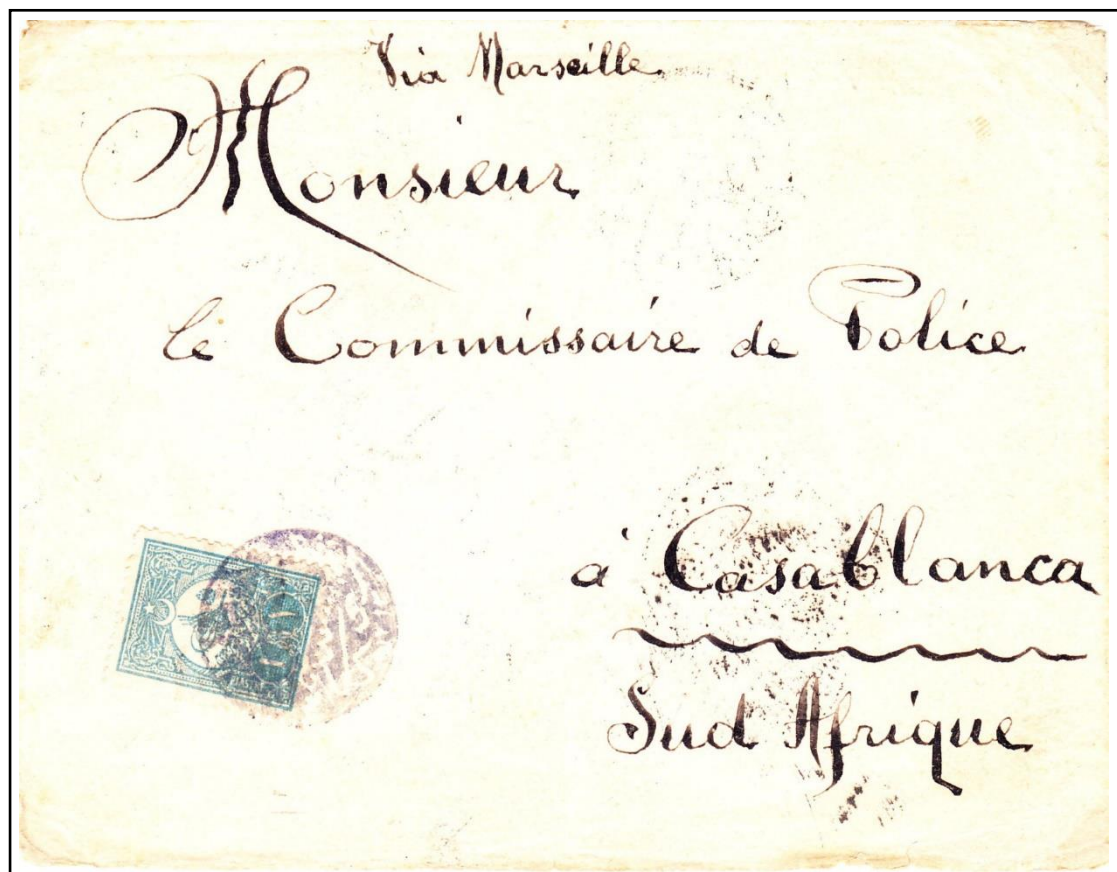 Via Marseille
Monsieur
le Commissaire de Police
à Casablanca
Sud Afrique